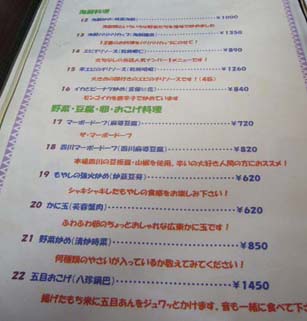 海鮮料理
12 ¥1000
13 ¥1350
14 エビチリソース(乾焼蝦仁) ¥890
15 ¥1260
大きめの頭付きのエビのチリソースです!(4匹)
16 イカとピーナツ炒め ¥840
モンゴイカを唐辛子で炒めています
野菜・豆腐・卵・おこげ料理
17 マーボードーフ(麻婆豆腐) ¥720
ザ・マーボードーフ
18 四川マーボードーフ(四川麻婆豆腐) ¥820
本場四川の豆板醤・山椒を使用。辛いの大好き人間の方におススメ!
19 もやしの強火炒め(炒銀芽菜) ¥620
シャキシャキしたもやしの食感をお楽しみ下さい!
20 かに玉(芙蓉蟹肉) ¥620
ふわふわ卵のちょっとおしゃれな広東かに玉です!
21 野菜炒め(清炒時菜) ¥850
何種類のやさいが入っているか数えてみてください!
22 五目おこげ(八珍鍋巴) ¥1450
揚げたもち米に五目あんをジュワッとかけます。音も一緒に食べて下